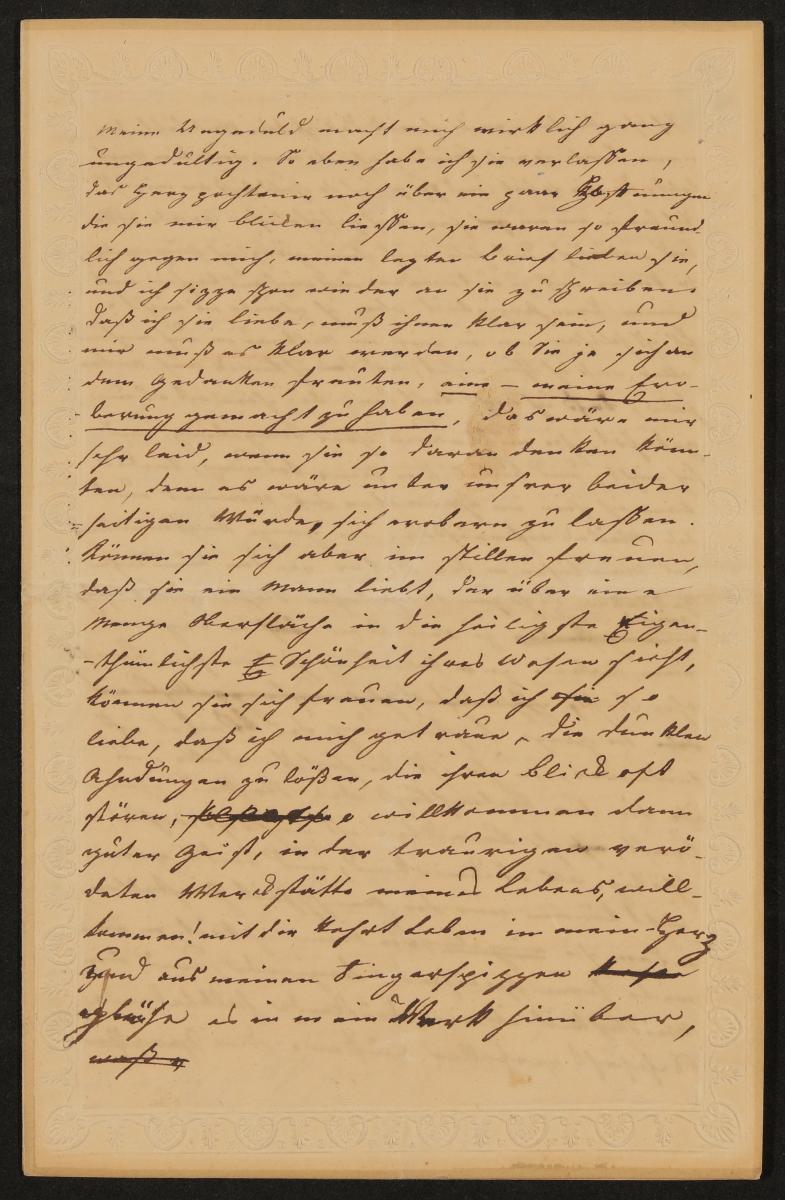 Meine Ungeduld macht mich wirklich ganz
ungedultig. So eben habe ich sie verlassen,
das Herz pochte mir noch über ein paar
die sie mir blicken liessen, sie waren so freund
lich gegen mich, meinen lezten Brief lieben sie,
und ich sizze schon wieder an sie zu schreiben.
daß ich sie liebe, muß ihnen klar sein, und
mir muß es klar werden, ob Sie je sich an
dem Gedanken freuten, eine — meine Ero-
berung gemacht zu haben, das wäre mir
sehr leid, wenn sie so daran denken könn-
ten, denn es wäre unter unsrer beider
seitigen Würde, sich erobern zu lassen.
Können sie sich aber im stillen freuen,
daß sie ein Mann liebt, der über eine
Menge Oberfläche in die heiligste Eigen-
-thümlichste Schönheit ihres Wesen sieht,
können sie sich freuen, daß ich sie so
liebe, daß ich mich getraue, die dunklen
Ahndungen zu lößen, die ihren Blick oft
stören, o willkommen dann
guter Geist, in der traurigen verö-
deten Werckstätte meines Lebens, will-
kommen! mit dir kehrt Leben in mein Herz
und aus meinen Fingerspizzen
glühe es in mein Werk hinüber,